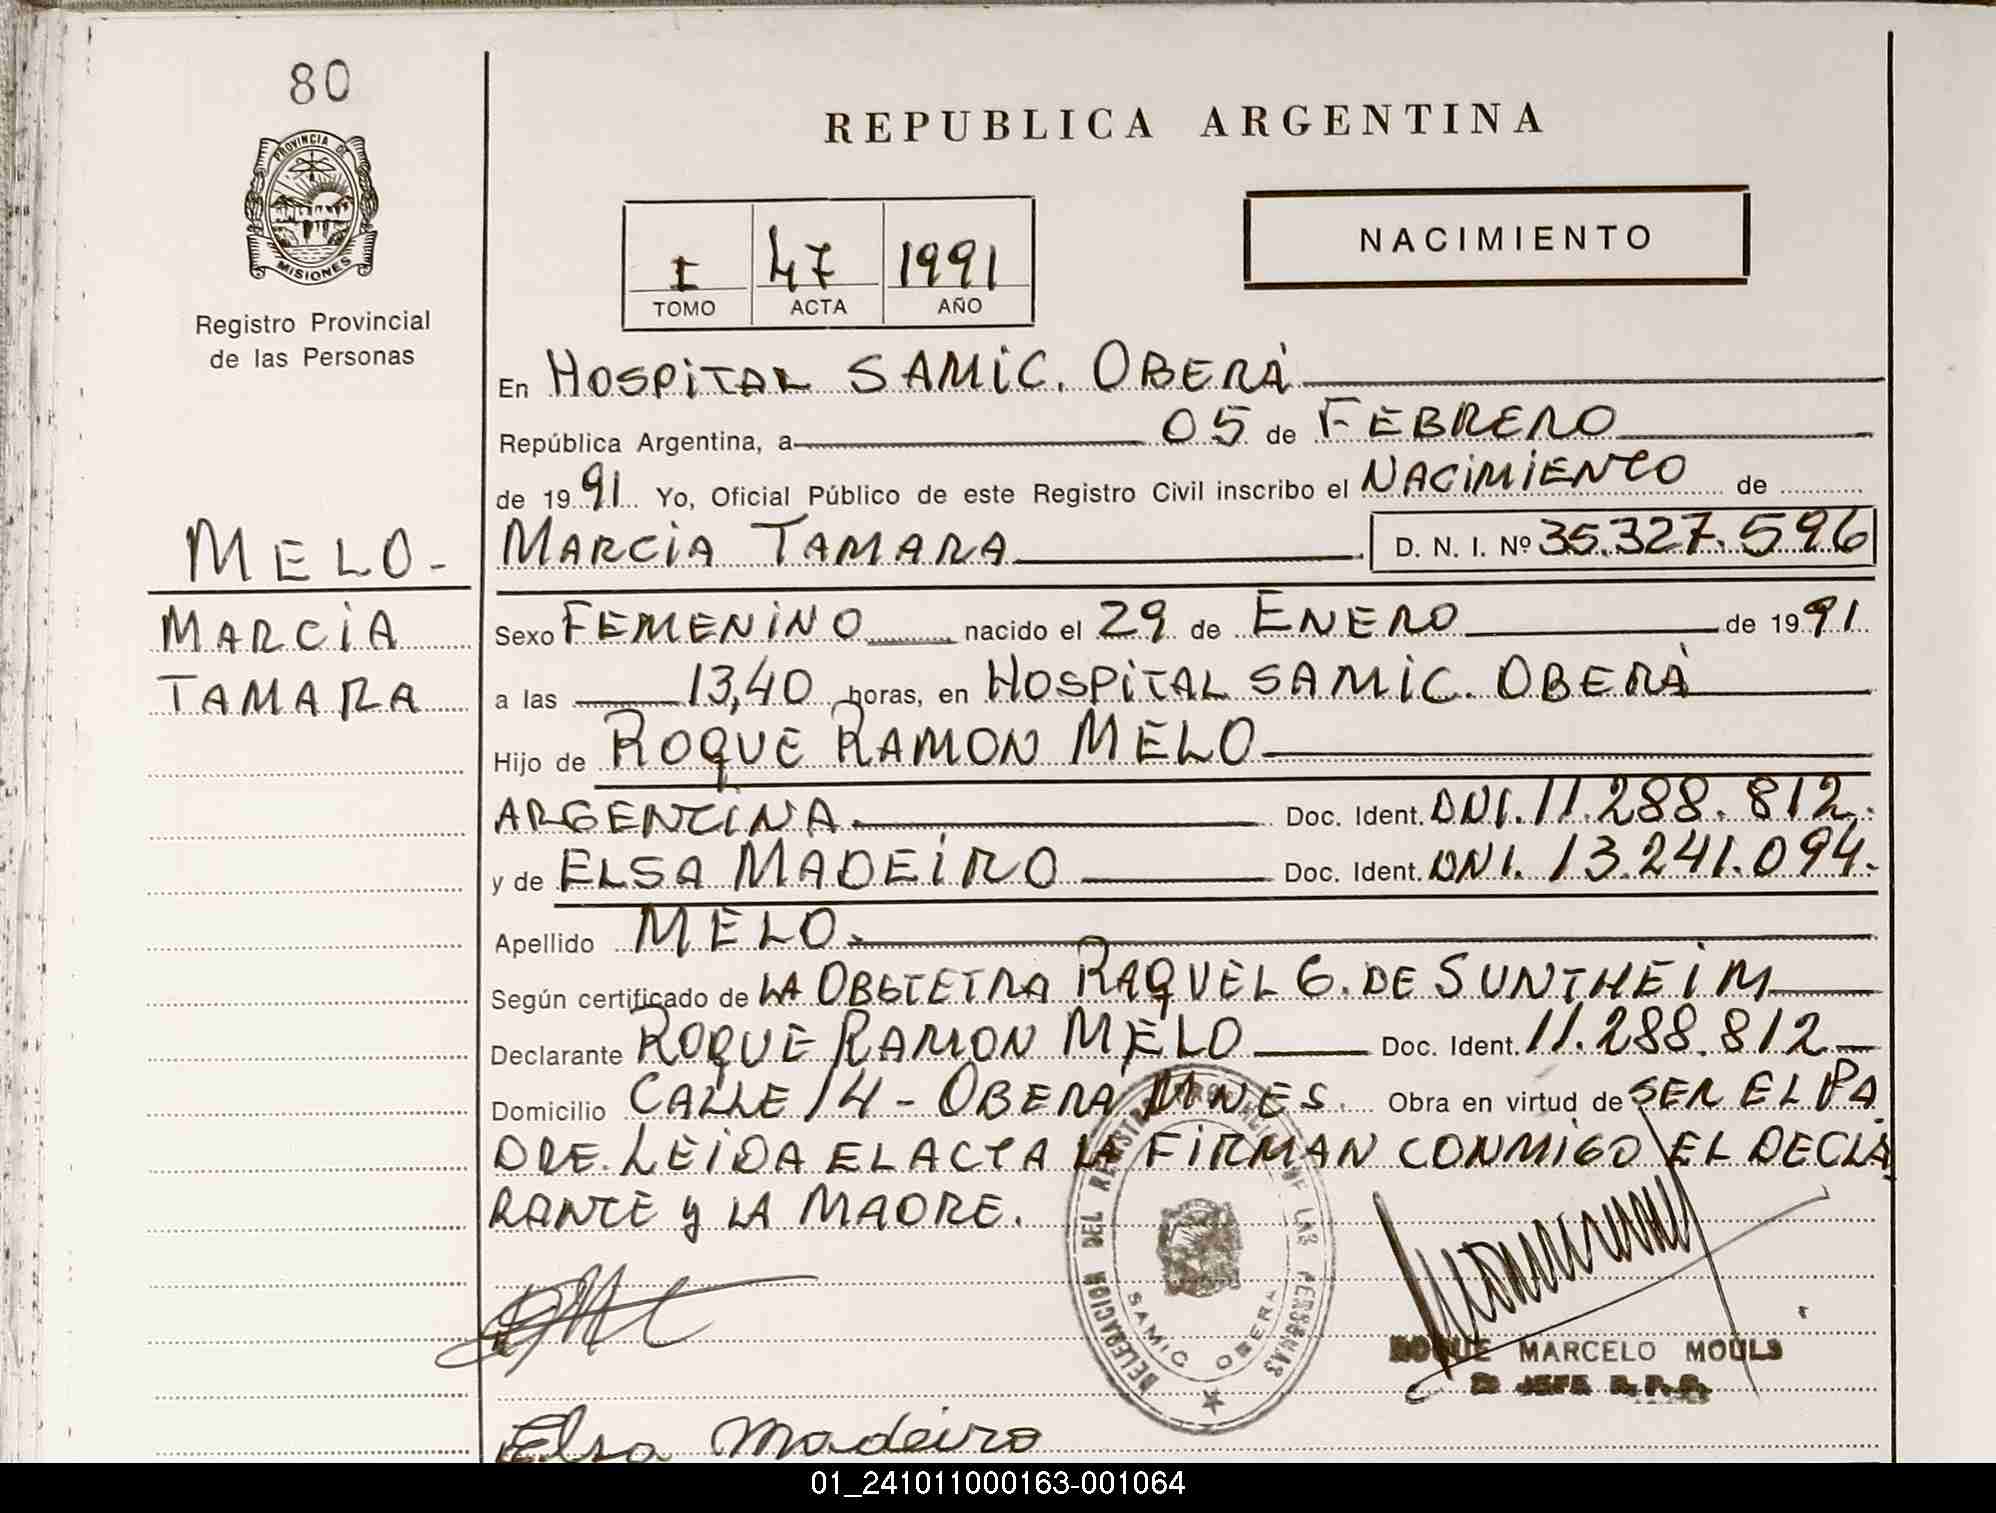 80
REPUBLICA ARGENTINA
PROVINCIA DE
MISIONES
Registro Provincial
de las Personas
I 47 1991
TOMO ACTA AÑO
NACIMIENTO
En HOSPITAL SAMIC. OBERÁ
República Argentina, a 05 de FEBRERO
de 1991 Yo, Oficial Público de este Registro Civil inscribo el NACIMIENTO de
MELO-
MARCIA TAMARA D. N. I. Nº 35.327.596
MARCIA
TAMARA
Sexo FEMENINO nacido el 29 de ENERO de 1991
a las 13,40 horas, en HOSPITAL SAMIC. OBERÁ
Hijo de ROQUE RAMON MELO
ARGENTINA. Doc. Ident. DNI. 11.288.812.
y de ELSA MADEIRO Doc. Ident. DNI. 13.241.094.
Apellido MELO.
Según certificado de LA OBSTETRA RAQUEL G. DE SUNTHEIM
Declarante ROQUE RAMON MELO Doc. Ident. 11.288.812
Domicilio CALLE 14 - OBERA MNES. Obra en virtud de SER EL PA
DRE. LEIDA EL ACTA LA FIRMAN CONMIGO EL DECLA
RANTE y LA MADRE.
DELEGACION DEL REGISTRO PROVINCIAL DE LAS PERSONAS
SAMIC OBERA
ROQUE MARCELO
JEFE R.P.P.
Elsa Madeiro
01_241011000163-001064